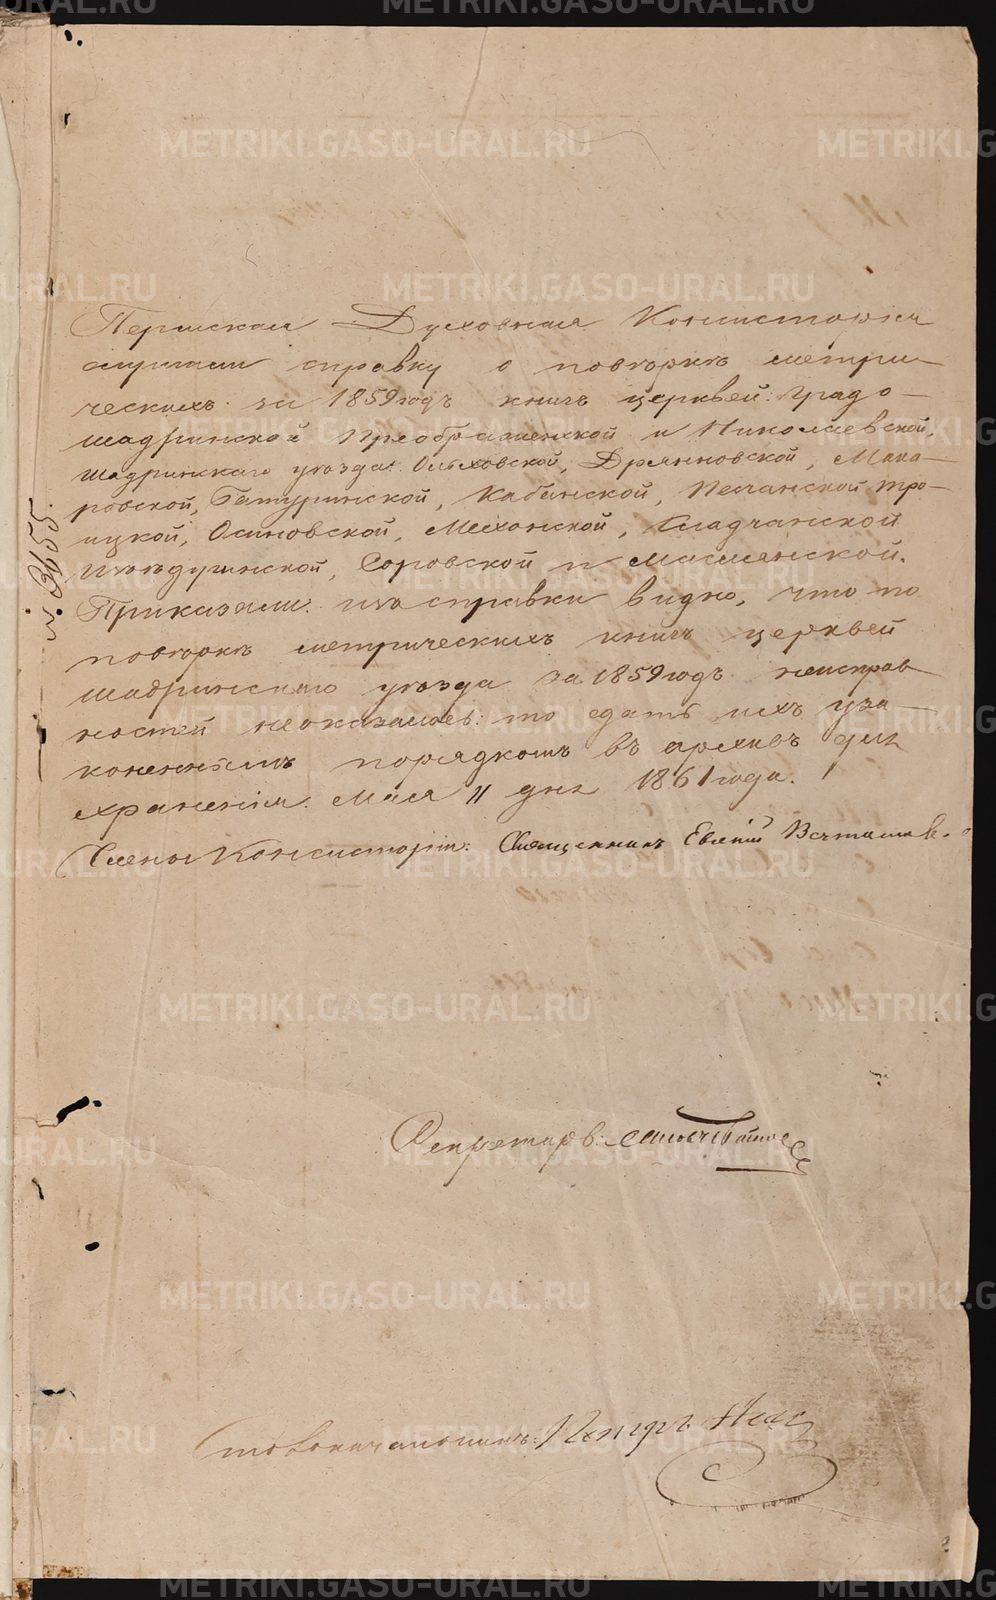 Пермская Духовная Консисторiя
слушали справку о повѣркѣ метри-
ческихъ за 1859 годъ книгъ церквей: градо-
шадринской Преображенской и Николаевской,
шадринскаго уѣзда: Ольховской, Дрянновской, Мака-
ровской, Батуринской, Кабанской, Песчанской Тро-
ицкой, Осиновской, Мехонской, Кладчанской
Изъѣдугинской, Соровской и Маслянской.
Приказали: изъ справки видно, что по
повѣркѣ метрическихъ книгъ церквей
шадринскаго уѣзда за 1859 годъ неисправ-
ностей неоказалось: то сдать ихъ уза-
коненнымъ порядкомъ въ архивъ для
храненiя. Мая 11 дня 1861 года.
Члены Консисторiи: Священникъ Евгенiй
Секретарь:
Столоначальникъ: Петръ
№ 3655.
METRIKI.GASO-URAL.RU